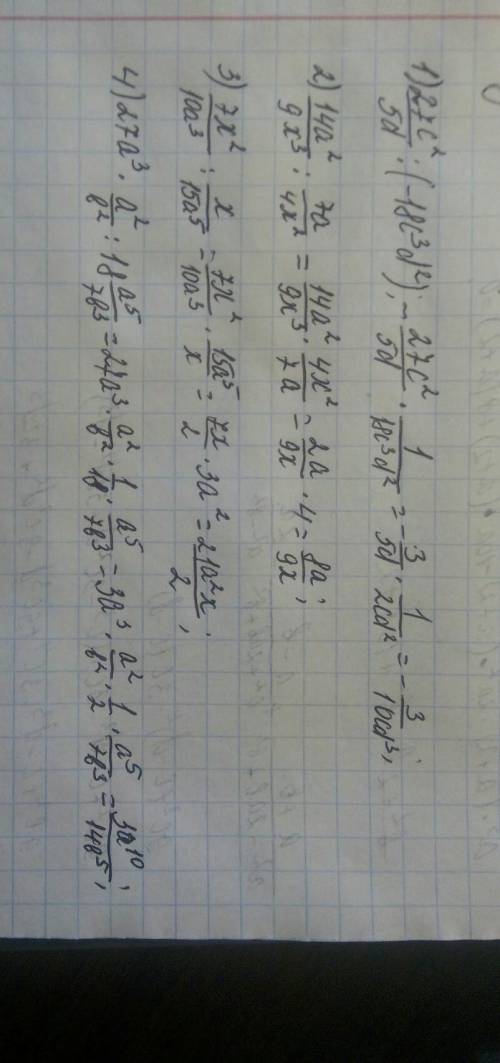 1) 27c²/5d : (-18c³d²) = - 27c²/5d · 1/18c³d² = - 3/5d · 1/2cd² = - 3/10cd³;
2) 14a²/9x³ : 7a/4x² = 14a²/9x³ · 4x²/7a = 2a/9x · 4 = 8a/9x;
3) 7x²/10a³ : x/15a⁵ = 7x²/10a³ · 15a⁵/x = 7x/2 · 3a² = 21a²x/2;
4) 27a³ · a²/b² : 18 a⁵/7b³ = 27a³ · a²/b² · 1/18 · a⁵/7b³ = 3a³ · a²/b² · 1/2 · a⁵/7b³ = 3a¹⁰/14b⁵;